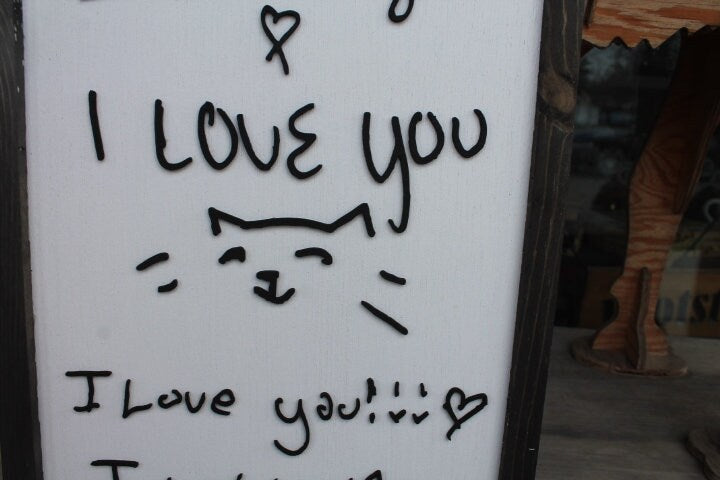 I LOVE YOU
I Love you!!!